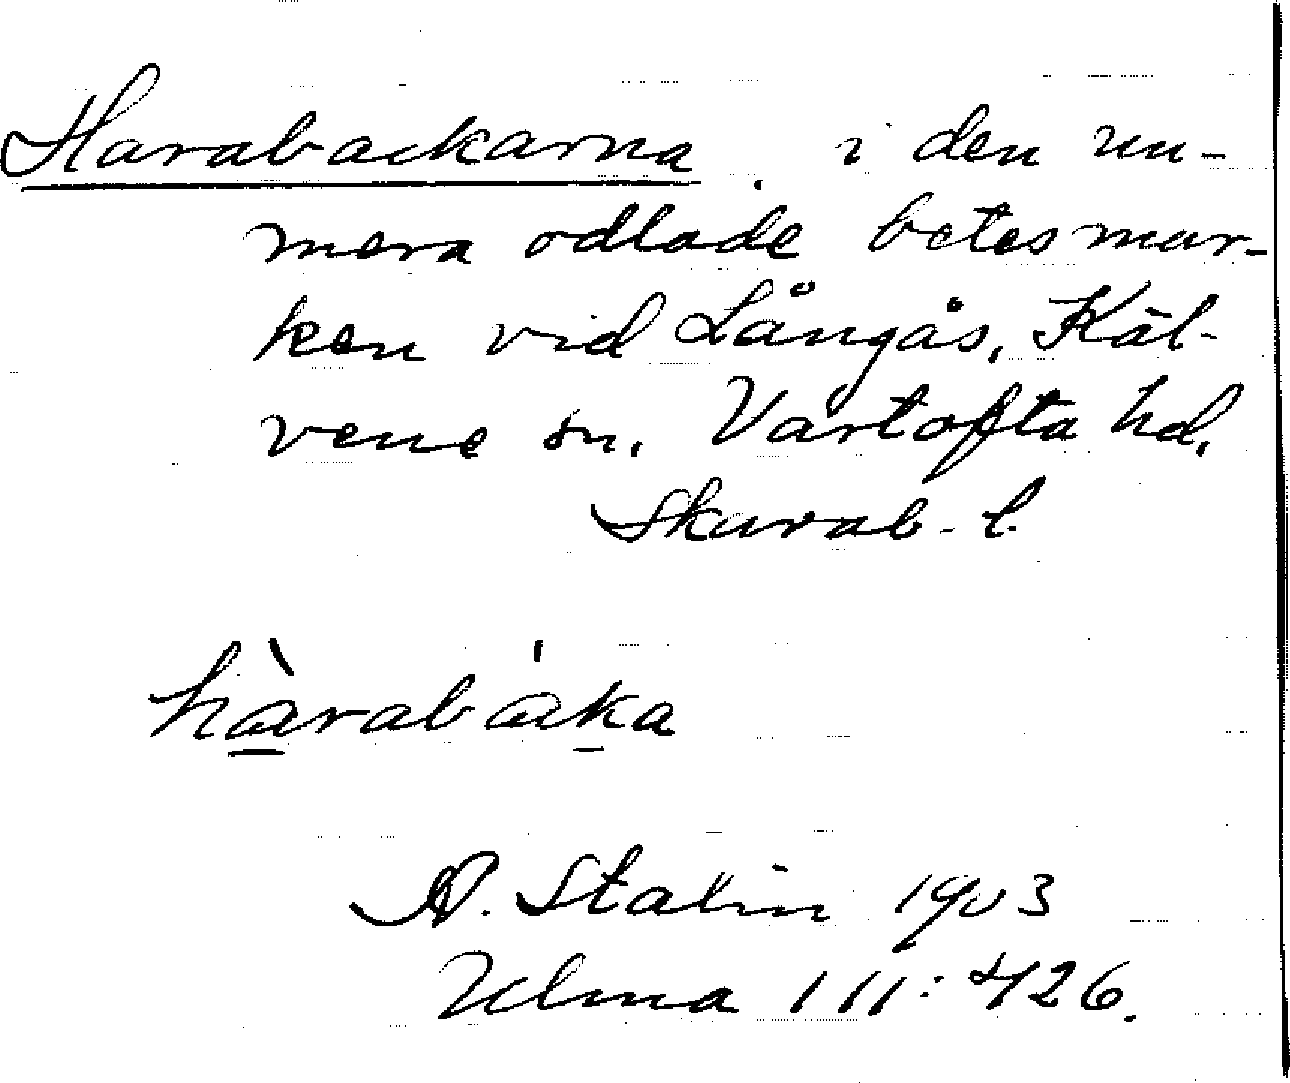 Harabackarna i den nu-
mera odlade betesmar-
ken vid Långås, Käl-
vene sn. Vartofta hd.
Skarab. l.
hàrabáka
A. Stalin 1903
Ulma 111:426.